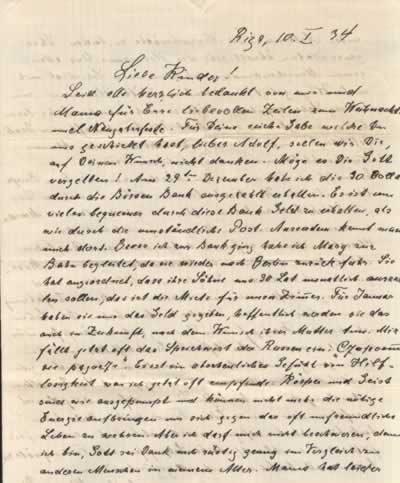 Riga, 10. I 34
Liebe Kinder!
Seid alle herzlich bedankt von mir und
Mama für Eure liebevollen Zeilen zum Weihnachts
und Neujahrsfeste. Für Deine reiche Gabe welche Du
uns geschickt hast, lieber Adolf, sollen wir Dir,
auf Deinen Wunsch, nicht danken. Möge es Dir Gott
vergelten! Am 29ten Dezember habe ich die 30 Dollar
durch die Börsen Bank ausgezahlt erhalten. Es ist uns
vieler bequemer durch diese Bank Geld zu erhalten, als
wie durch die umständliche Post. Ausserdem kennt man
mich dort. Bevor ich zur Bank ging habe ich Mary zur
Bahn begleitet, da sie wieder nach zurück fuhr. Sie
hat angeordnet, dass ihre Söhne uns 30 Lat monatlich auszah-
len sollen, das ist die Miete für unser Zimmer. Für Januar
haben sie uns das Geld gegeben, hoffentlich werden sie das
auch in Zukunft, nach dem Wunsch ihrer Mutter tun. Mir
fällt jetzt oft das Sprichwort der Russen ein:
Es ist ein Gefühl von Hilf-
losigkeit was ich jetzt oft empfinde. Körper und Geist
sind wie ausgepumpt und können nicht mehr die nötige
Energie aufbringen um sich gegen das oft unfreundliche
Leben zu wehren. Aber ich darf mich nicht beschweren, denn
ich bin, Gott sei Dank noch rüstig genug im Vergleich zu
anderen Menschen in meinem Alter. Mama hat leider